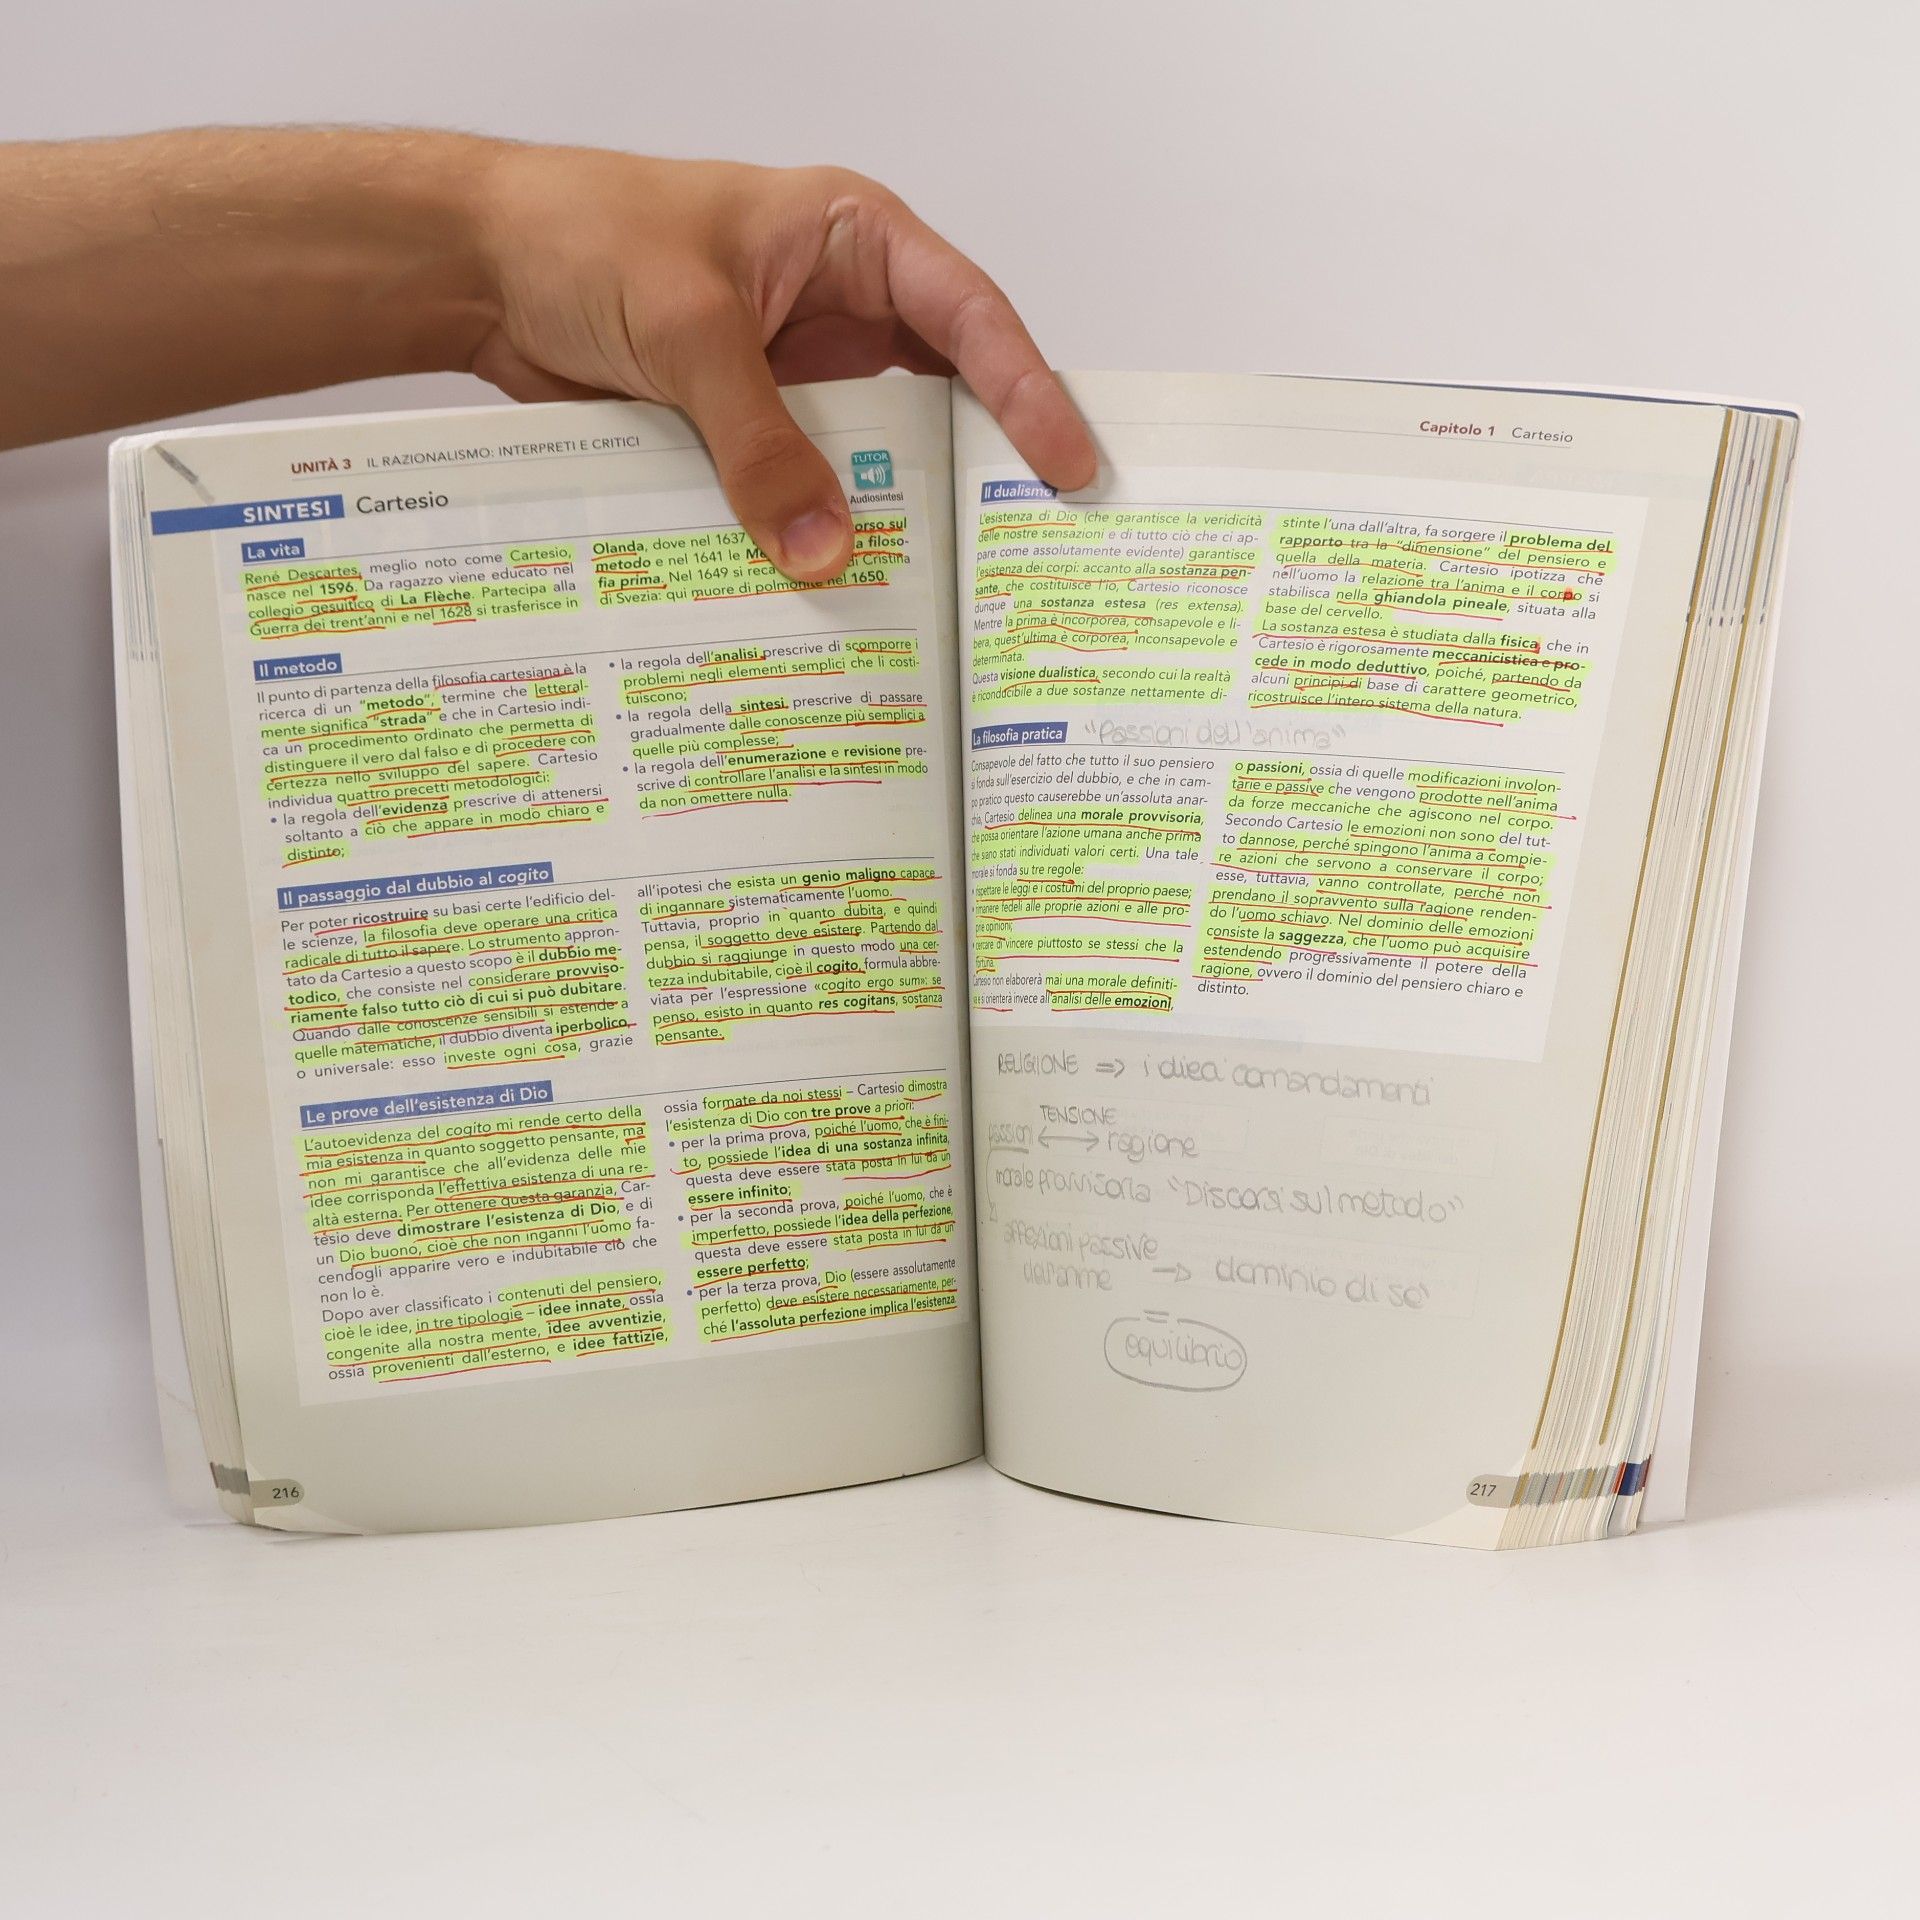 UNITÀ 3 IL RAZIONALISMO: INTERPRETI E CRITICI
SINTESI Cartesio
TUTOR
Audiosintesi
La vita
René Descartes, meglio noto come Cartesio,
nasce nel 1596. Da ragazzo viene educato nel
collegio gesuitico di La Flèche. Partecipa alla
Guerra dei trent'anni e nel 1628 si trasferisce in
Olanda, dove nel 1637 orso sul
metodo e nel 1641 le a filoso-
fia prima. Nel 1649 si reca di Cristina
di Svezia: qui muore di polmonite nel 1650.
Il metodo
Il punto di partenza della filosofia cartesiana è la
ricerca di un "metodo", termine che letteral-
mente significa "strada" e che in Cartesio indi-
ca un procedimento ordinato che permetta di
distinguere il vero dal falso e di procedere con
certezza nello sviluppo del sapere. Cartesio
individua quattro precetti metodologici:
• la regola dell'evidenza prescrive di attenersi
soltanto a ciò che appare in modo chiaro e
distinto;
• la regola dell'analisi prescrive di scomporre i
problemi negli elementi semplici che li costi-
tuiscono;
• la regola della sintesi prescrive di passare
gradualmente dalle conoscenze più semplici a
quelle più complesse;
• la regola dell'enumerazione e revisione pre-
scrive di controllare l'analisi e la sintesi in modo
da non omettere nulla.
Il passaggio dal dubbio al cogito
Per poter ricostruire su basi certe l'edificio del-
le scienze, la filosofia deve operare una critica
radicale di tutto il sapere. Lo strumento appron-
tato da Cartesio a questo scopo è il dubbio me-
todico, che consiste nel considerare provviso-
riamente falso tutto ciò di cui si può dubitare.
Quando dalle conoscenze sensibili si estende a
quelle matematiche, il dubbio diventa iperbolico,
o universale: esso investe ogni cosa, grazie
all'ipotesi che esista un genio maligno capace
di ingannare sistematicamente l'uomo.
Tuttavia, proprio in quanto dubita, e quindi
pensa, il soggetto deve esistere. Partendo dal
dubbio si raggiunge in questo modo una cer-
tezza indubitabile, cioè il cogito, formula abbre-
viata per l'espressione «cogito ergo sum»: se
penso, esisto in quanto res cogitans, sostanza
pensante.
Le prove dell'esistenza di Dio
L'autoevidenza del cogito mi rende certo della
mia esistenza in quanto soggetto pensante, ma
non mi garantisce che all'evidenza delle mie
idee corrisponda l'effettiva esistenza di una re-
altà esterna. Per ottenere questa garanzia, Car-
tesio deve dimostrare l'esistenza di Dio, e di
un Dio buono, cioè che non inganni l'uomo fa-
cendogli apparire vero e indubitabile ciò che
non lo è.
Dopo aver classificato i contenuti del pensiero,
cioè le idee, in tre tipologie – idee innate, ossia
congenite alla nostra mente, idee avventizie,
ossia provenienti dall'esterno, e idee fattizie,
ossia formate da noi stessi – Cartesio dimostra
l'esistenza di Dio con tre prove a priori:
• per la prima prova, poiché l'uomo, che è fini-
to, possiede l'idea di una sostanza infinita,
questa deve essere stata posta in lui da un
essere infinito;
• per la seconda prova, poiché l'uomo, che è
imperfetto, possiede l'idea della perfezione,
questa deve essere stata posta in lui da un
essere perfetto;
• per la terza prova, Dio (essere assolutamente
perfetto) deve esistere necessariamente, per-
ché l'assoluta perfezione implica l'esistenza.
216
Capitolo 1 Cartesio
Il dualismo
L'esistenza di Dio (che garantisce la veridicità
delle nostre sensazioni e di tutto ciò che ci ap-
pare come assolutamente evidente) garantisce
l'esistenza dei corpi: accanto alla sostanza pen-
sante, che costituisce l'io, Cartesio riconosce
dunque una sostanza estesa (res extensa).
Mentre la prima è incorporea, consapevole e li-
bera, quest'ultima è corporea, inconsapevole e
determinata.
Questa visione dualistica, secondo cui la realtà
è riconducibile a due sostanze nettamente di-
stinte l'una dall'altra, fa sorgere il problema del
rapporto tra la "dimensione" del pensiero e
quella della materia. Cartesio ipotizza che
nell'uomo la relazione tra l'anima e il corpo si
stabilisca nella ghiandola pineale, situata alla
base del cervello.
La sostanza estesa è studiata dalla fisica, che in
Cartesio è rigorosamente meccanicistica e pro-
cede in modo deduttivo, poiché, partendo da
alcuni principi di base di carattere geometrico,
ricostruisce l'intero sistema della natura.
La filosofia pratica "Passioni dell'anima"
Consapevole del fatto che tutto il suo pensiero
si fonda sull'esercizio del dubbio, e che in cam-
po pratico questo causerebbe un'assoluta anar-
chia, Cartesio delinea una morale provvisoria,
che possa orientare l'azione umana anche prima
che siano stati individuati valori certi. Una tale
morale si fonda su tre regole:
• rispettare le leggi e i costumi del proprio paese;
• rimanere fedeli alle proprie azioni e alle pro-
prie opinioni;
• cercare di vincere piuttosto se stessi che la
fortuna.
Cartesio non elaborerà mai una morale definiti-
va e si orienterà invece all'analisi delle emozioni,
o passioni, ossia di quelle modificazioni involon-
tarie e passive che vengono prodotte nell'anima
da forze meccaniche che agiscono nel corpo.
Secondo Cartesio le emozioni non sono del tut-
to dannose, perché spingono l'anima a compie-
re azioni che servono a conservare il corpo;
esse, tuttavia, vanno controllate, perché non
prendano il sopravvento sulla ragione renden-
do l'uomo schiavo. Nel dominio delle emozioni
consiste la saggezza, che l'uomo può acquisire
estendendo progressivamente il potere della
ragione, ovvero il dominio del pensiero chiaro e
distinto.
RELIGIONE => i dieci comandamenti
TENSIONE
passioni <-> ragione
morale provvisoria "Discorsi sul metodo"
affezioni passive
dell'anima -> dominio di se'
=
equilibrio
217